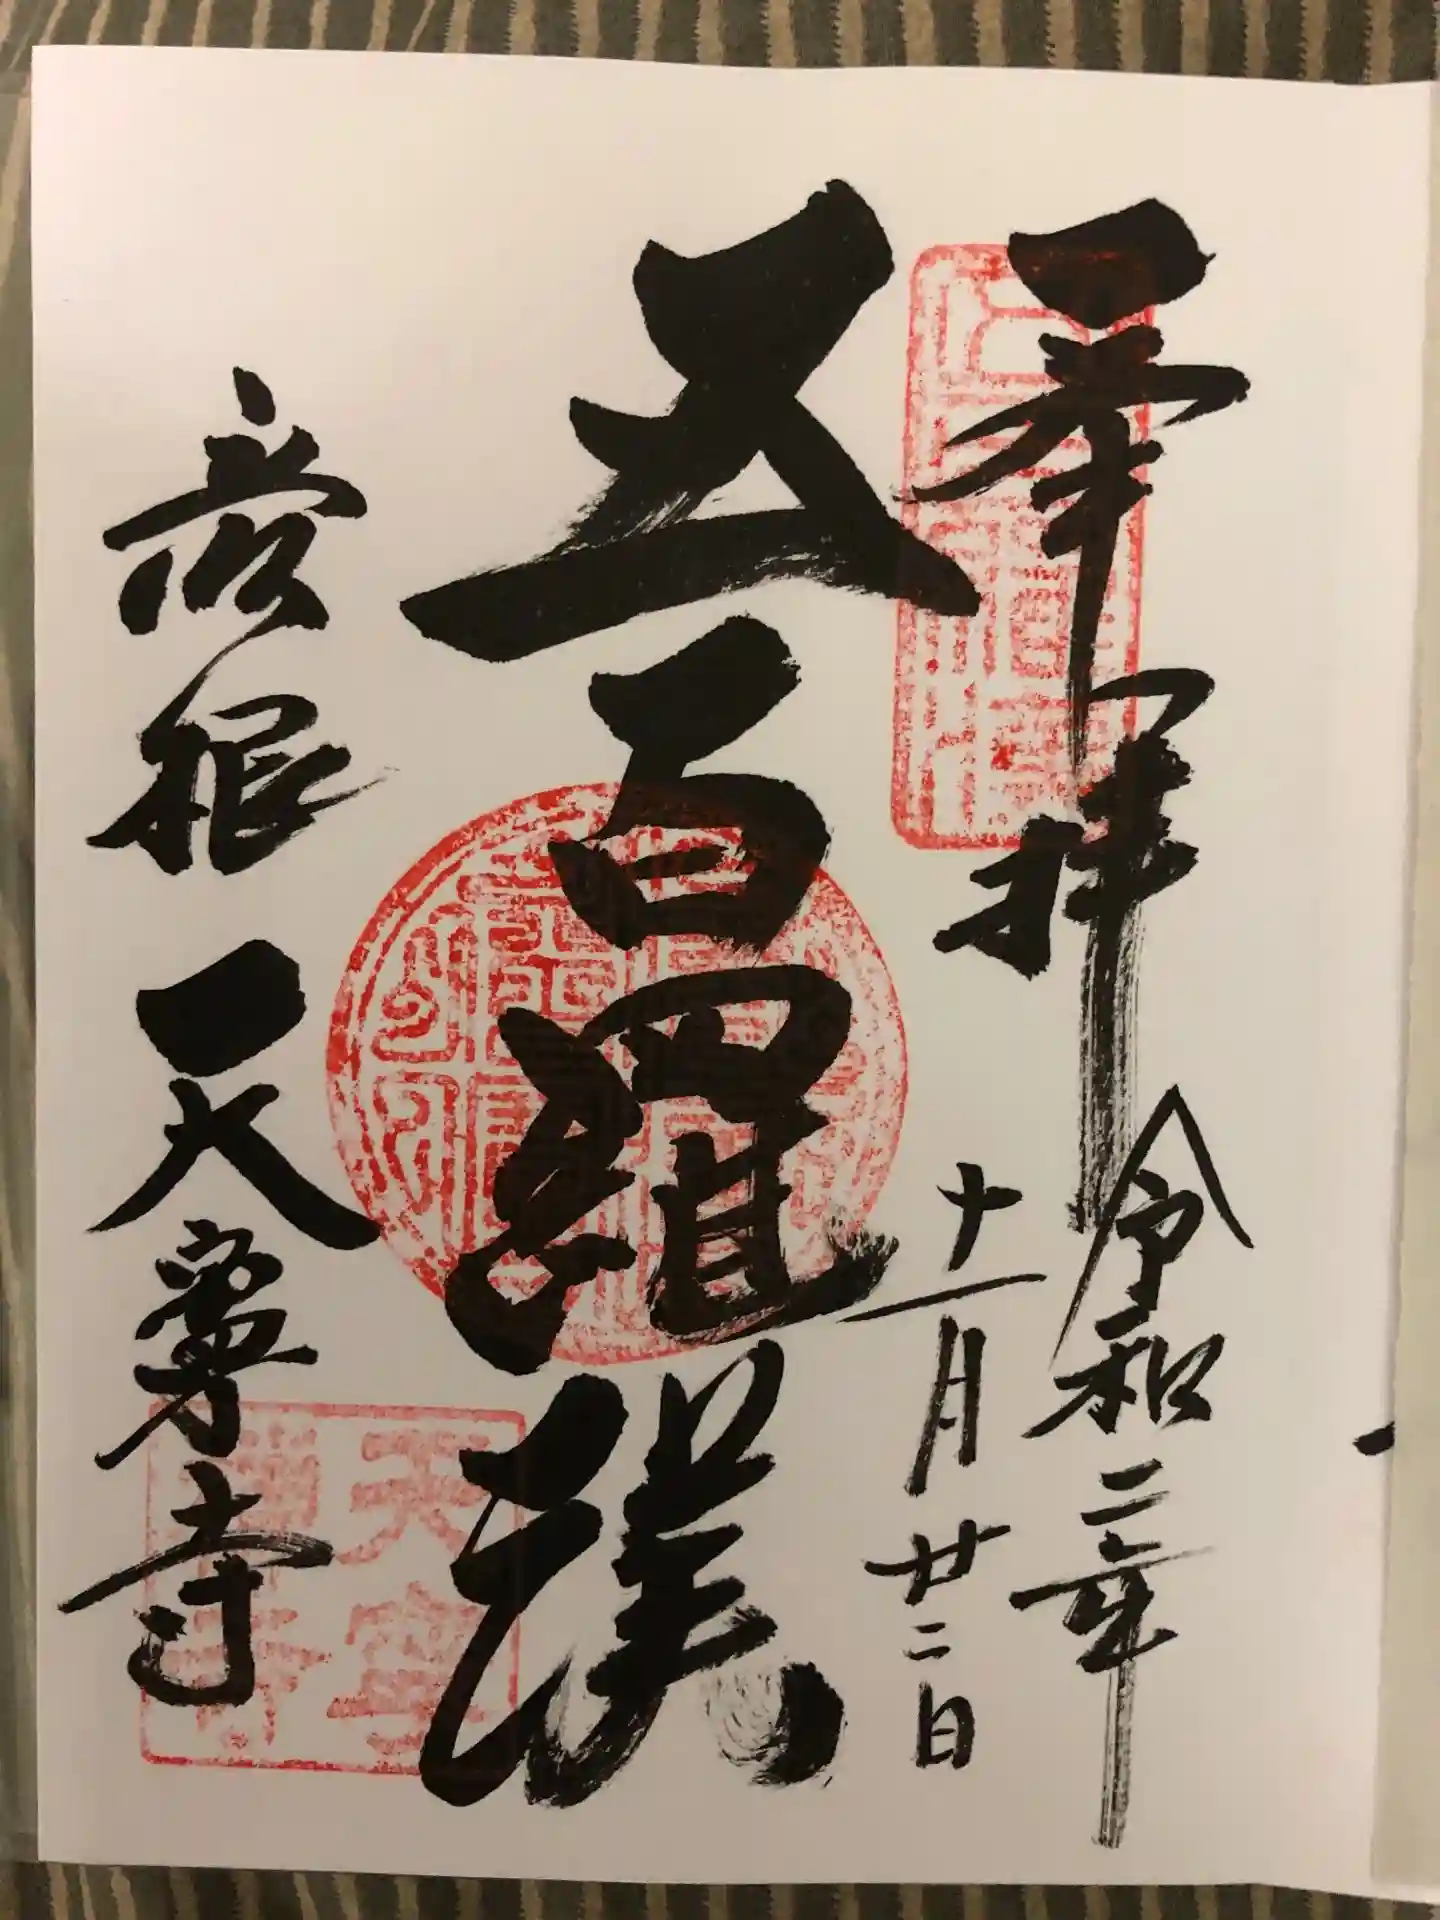 奉拝
令和二年
十一月廿二日
五百羅漢
彦根 天寧寺
天寧
禅寺